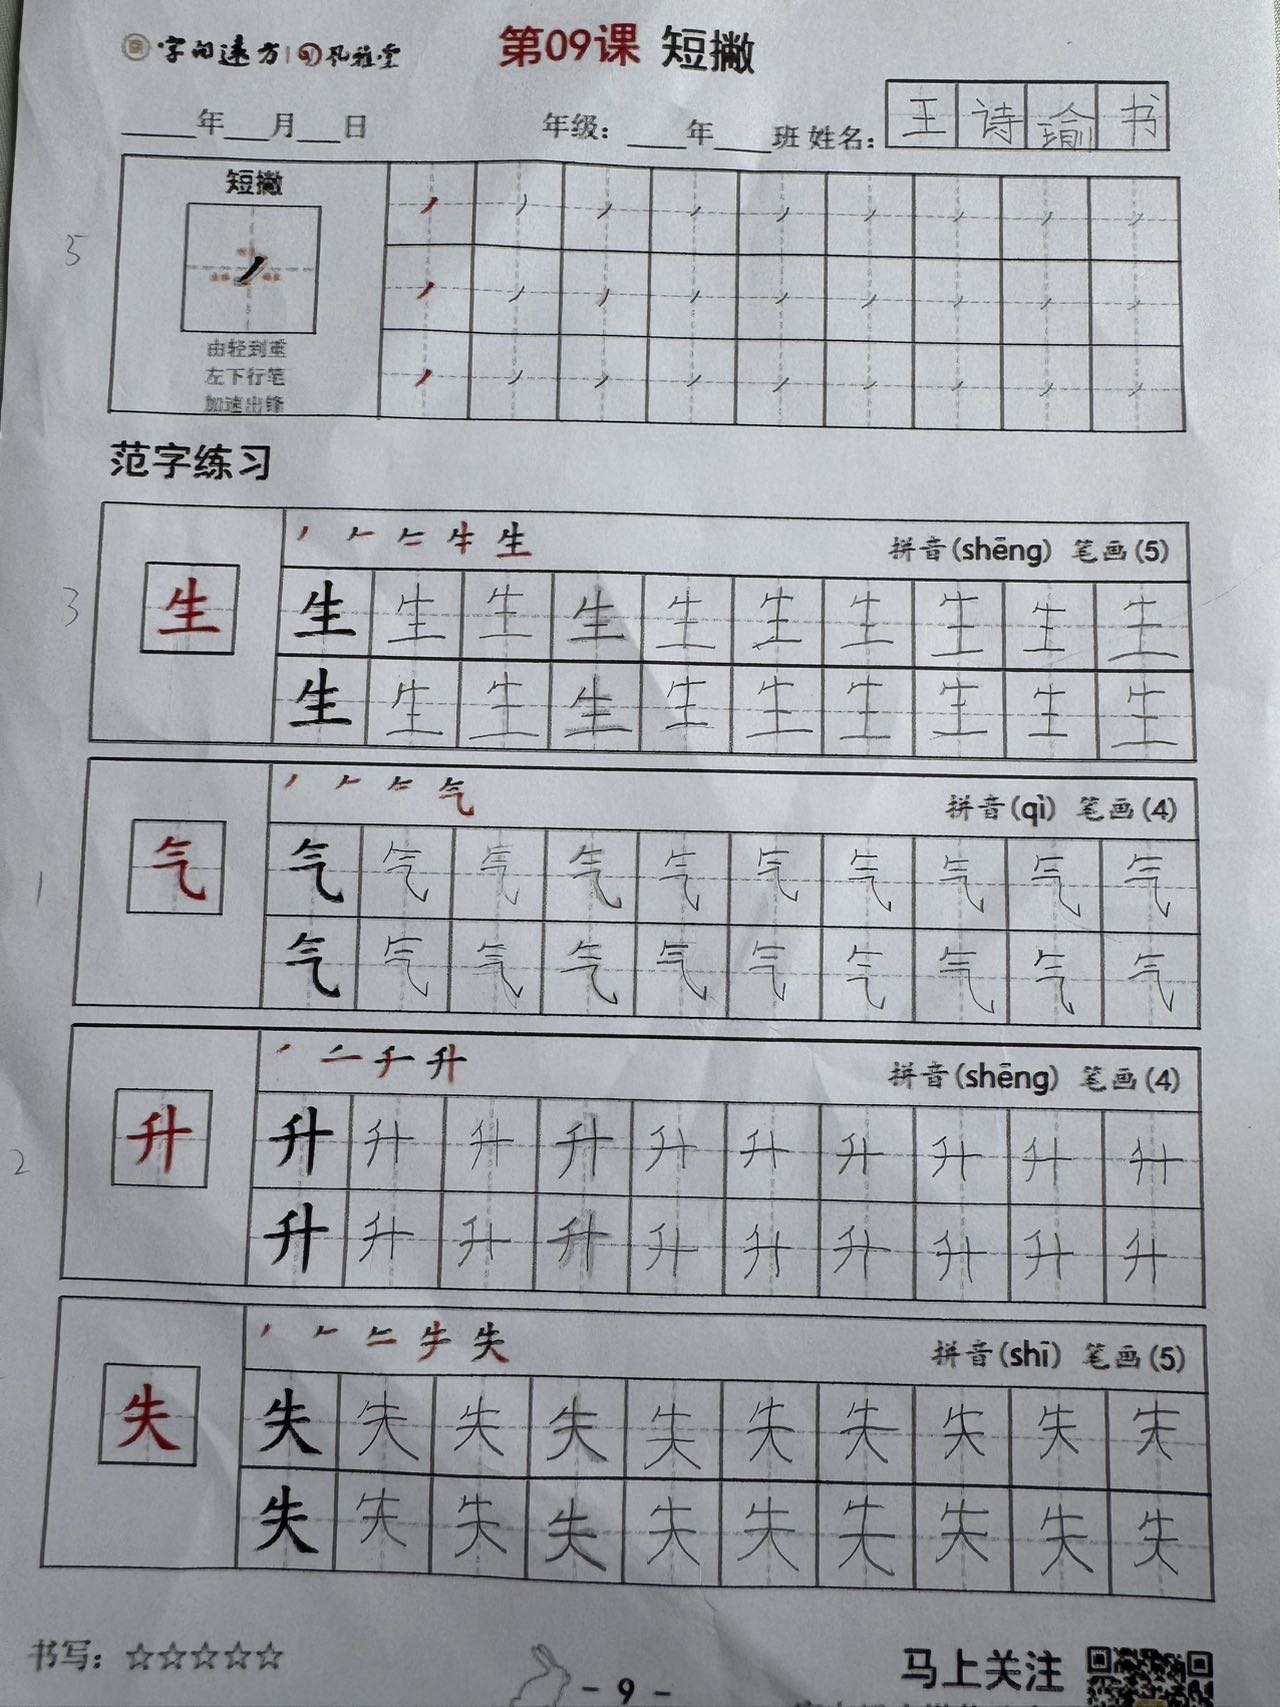 字间速方 孔雅堂 第09课 短撇
____年___月___日 年级：____年____班 姓名： 王诗瑜书
短撇
5
由轻到重
左下行笔
加速出锋
范字练习
生 拼音(shēng) 笔画(5)
3 生 生 生 生 生 生 生 生 生 生 生
生 生 生 生 生 生 生 生 生 生
气 拼音(qì) 笔画(4)
1 气 气 气 气 气 气 气 气 气 气 气
气 气 气 气 气 气 气 气 气 气
升 拼音(shēng) 笔画(4)
2 升 升 升 升 升 升 升 升 升 升 升
升 升 升 升 升 升 升 升 升 升
失 拼音(shī) 笔画(5)
失 失 失 失 失 失 失 失 失 失 失
失 失 失 失 失 失 失 失 失 失
书写：☆☆☆☆☆ 马上关注
- 9 -